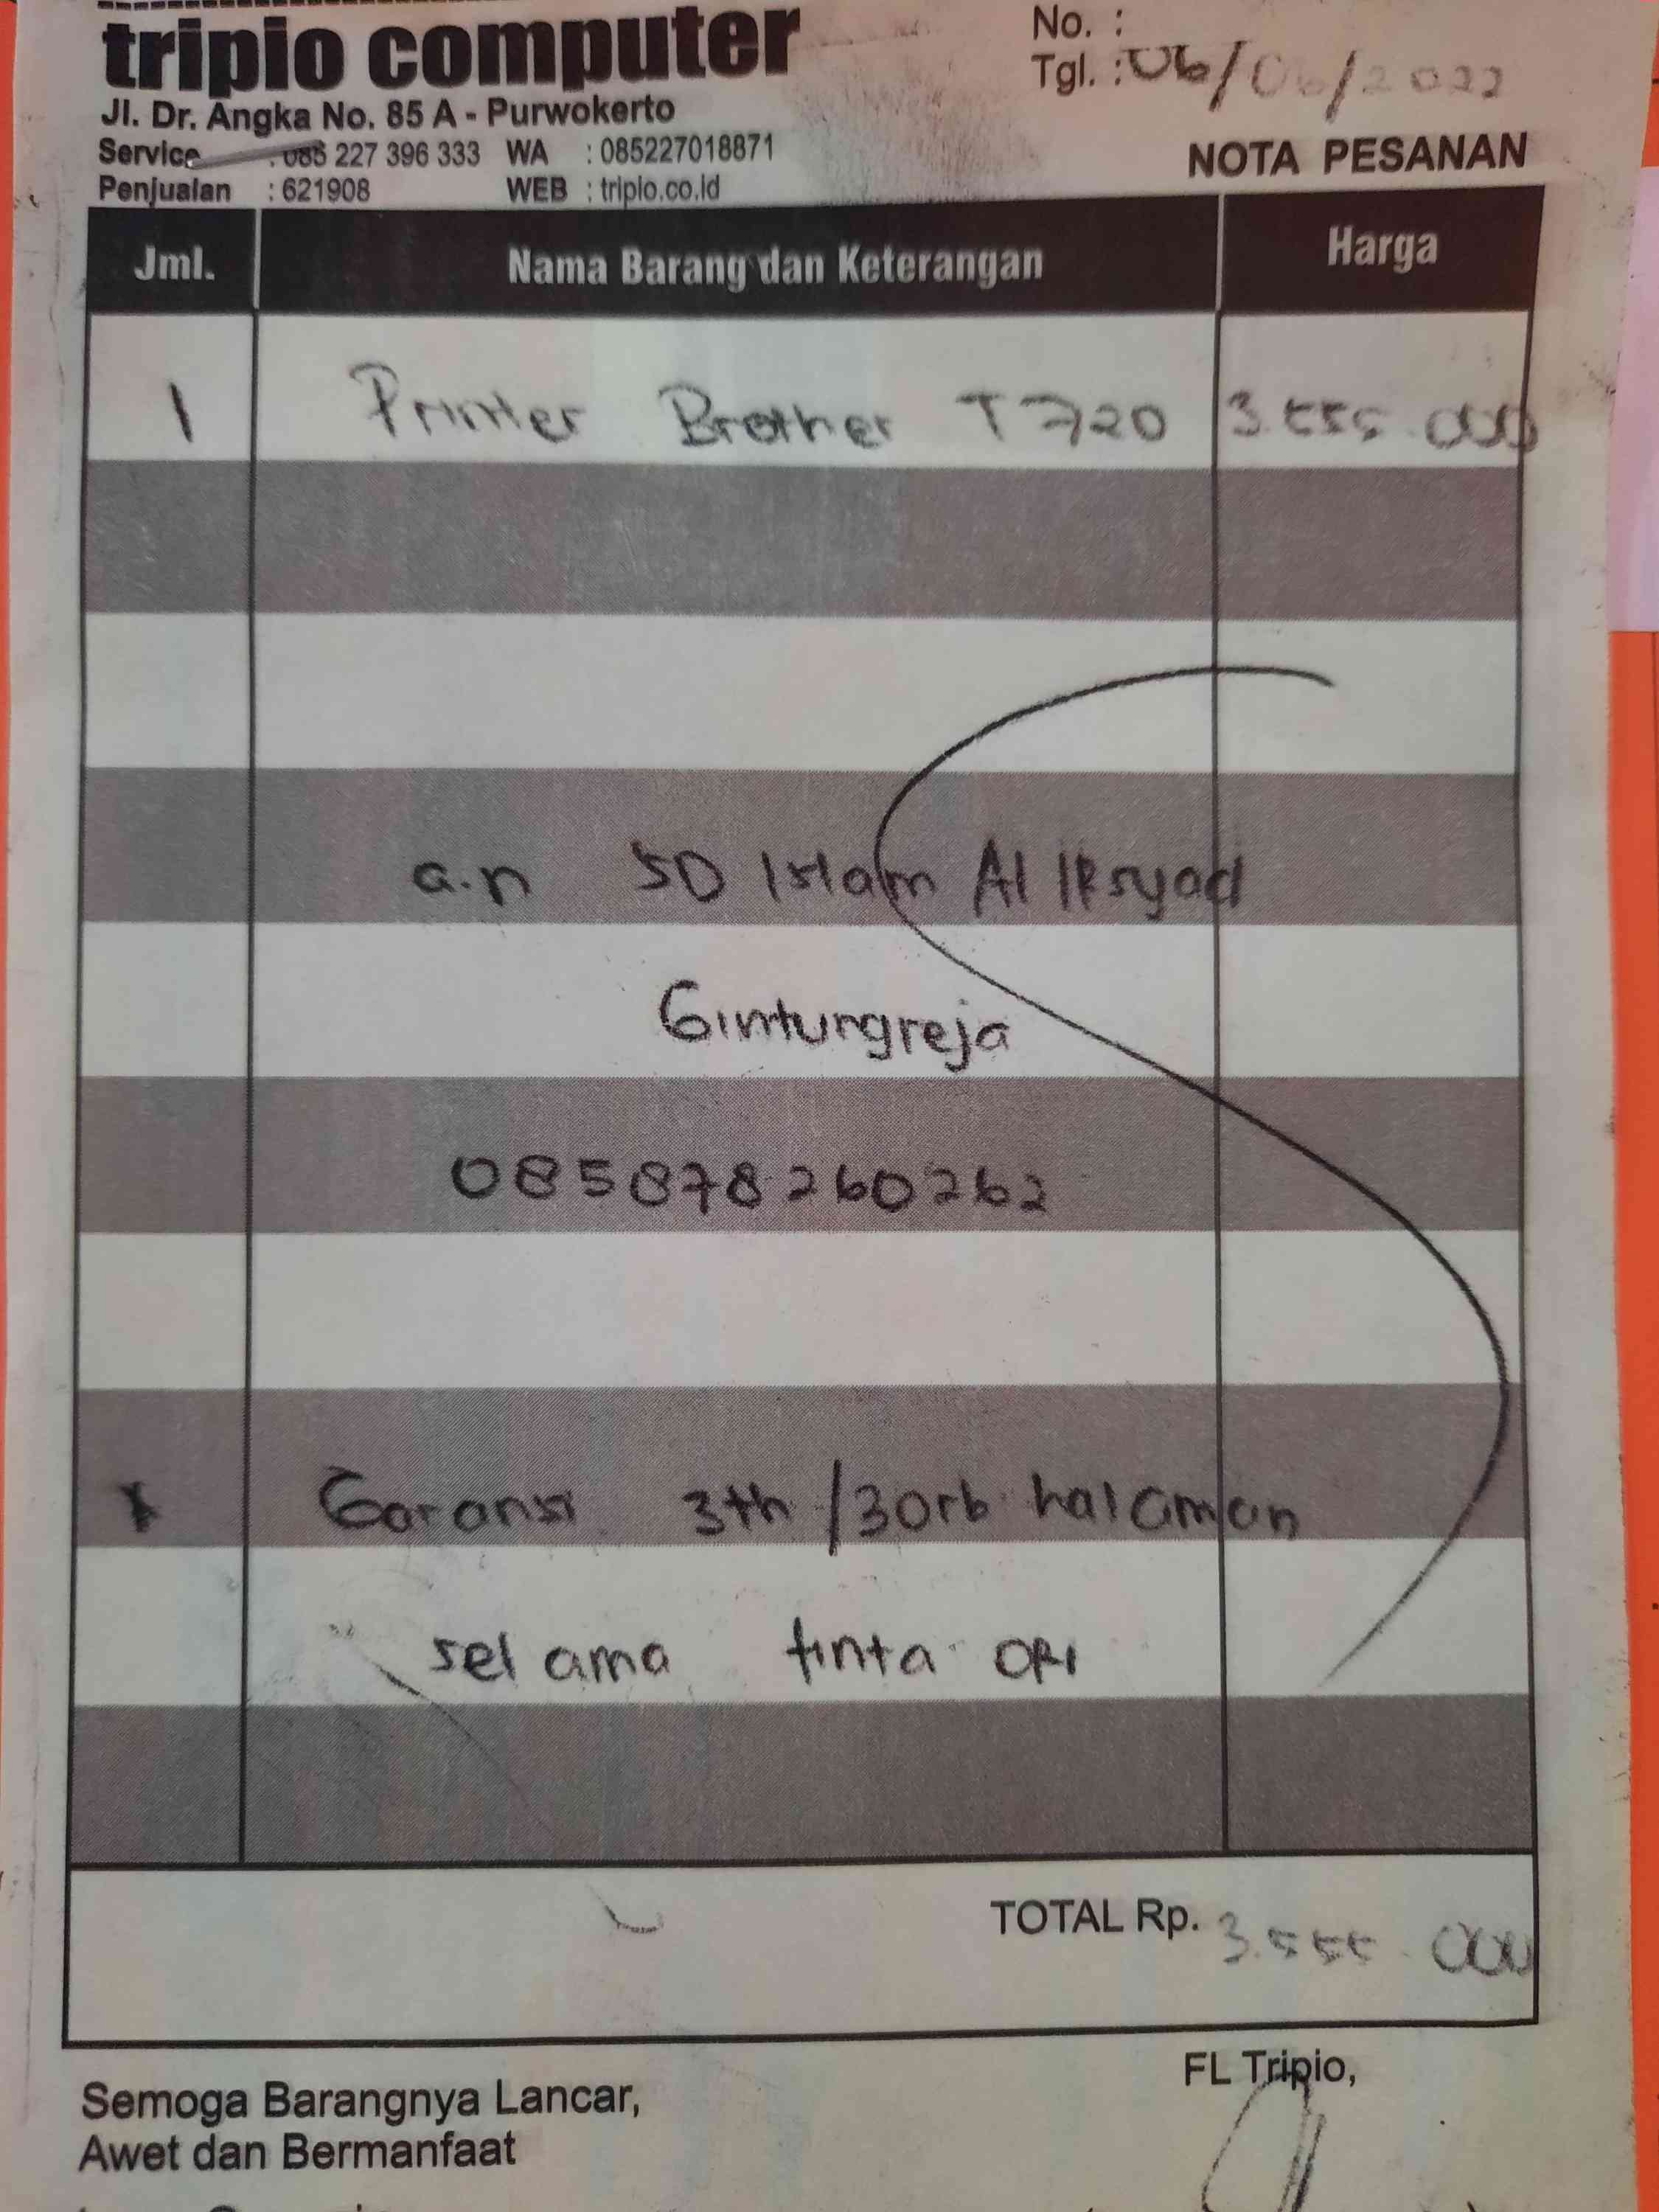 tripio computer
No. :
Tgl. : 06/06/2022
Jl. Dr. Angka No. 85 A - Purwokerto
Service : 085 227 396 333 WA : 085227018871
Penjualan : 621908 WEB : tripio.co.id
NOTA PESANAN
Jml. Nama Barang dan Keterangan Harga
1 Printer Brother T720 3.555.000
a.n SD Islam Al IRsyad
Gimturgreja
085878260262
* Garansi 3th/30rb halaman
selama tinta ORI
TOTAL Rp. 3.555.000
FL Tripio,
Semoga Barangnya Lancar,
Awet dan Bermanfaat